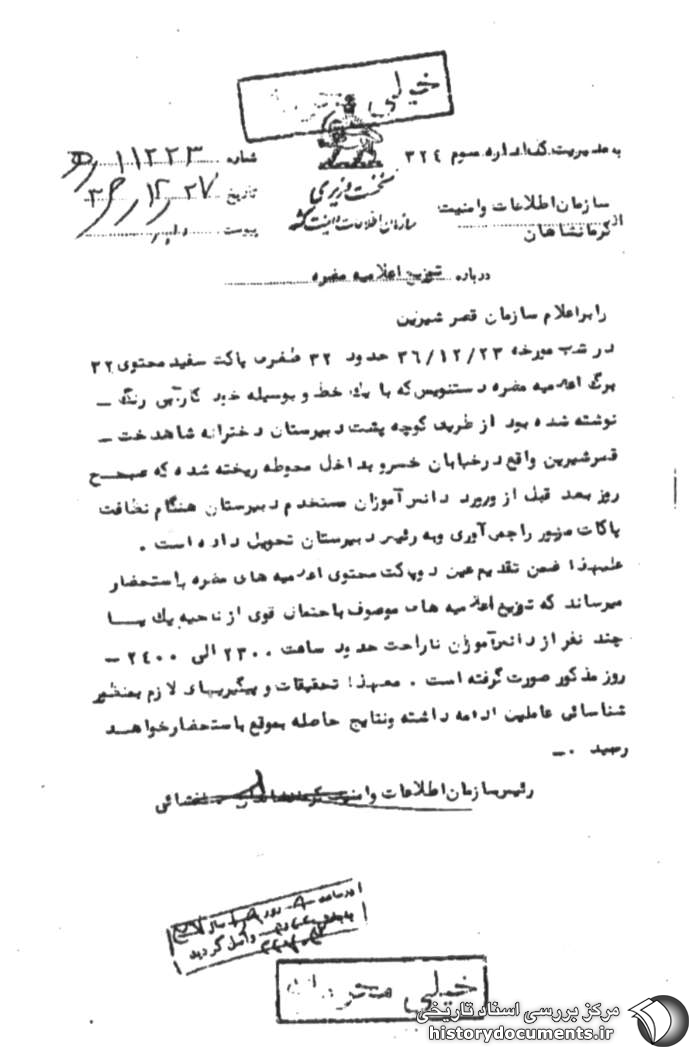 خیلی
به مدیریت کل اداره سوم ۳۲٤
شماره ۱۱۲۲۳
نخست وزیری
سازمان اطلاعات و امنیت کشور
تاریخ
پیوست دارد
از سازمان اطلاعات و امنیت
کرمانشاهان
درباره توزیع اعلامیه مضره
رابر اعلام سازمان قصر شیرین
در شب مورخه ۳۶/۱۲/۲۳ حدود ۳۲ طغری پاکت سفید محتوی ۳۲
برگ اعلامیه مضره دستنویس که با یک خط و بوسیله خود کار آبی رنگ ـ
نوشته شده بود از طریق کوچه پشت دبیرستان دخترانه شاهدخت ـ
قصرشیرین واقع در خیابان خسرو بداخل محوطه ریخته شده که صبح
روز بعد قبل از ورود دانش آموزان مستخدم دبیرستان هنگام نظافت
پاکات مزبور را جمع آوری و به رئیس دبیرستان تحویل داده است .
علیهذا ضمن تقدیم عین دو پاکت محتوی اعلامیه های مضره باستحضار
میرساند که توزیع اعلامیه های موصوف باحتمال قوی از ناحیه یک یا
چند نفر از دانش آموزان ناراحت حدود ساعت ۲۳۰۰ الی ۲٤۰۰ ـ
روز مذکور صورت گرفته است . معهذا تحقیقات و پیگیریهای لازم بمنظور
شناسائی عاملین ادامه داشته و نتایج حاصله بموقع باستحضار خواهد
رسید .ـ
رئیس سازمان اطلاعات و امنیت کرمانشاهان
در ساعت ۸ روز
واصل گردید
خیلی محرمانه
مرکز بررسی اسناد تاریخی
historydocuments.ir